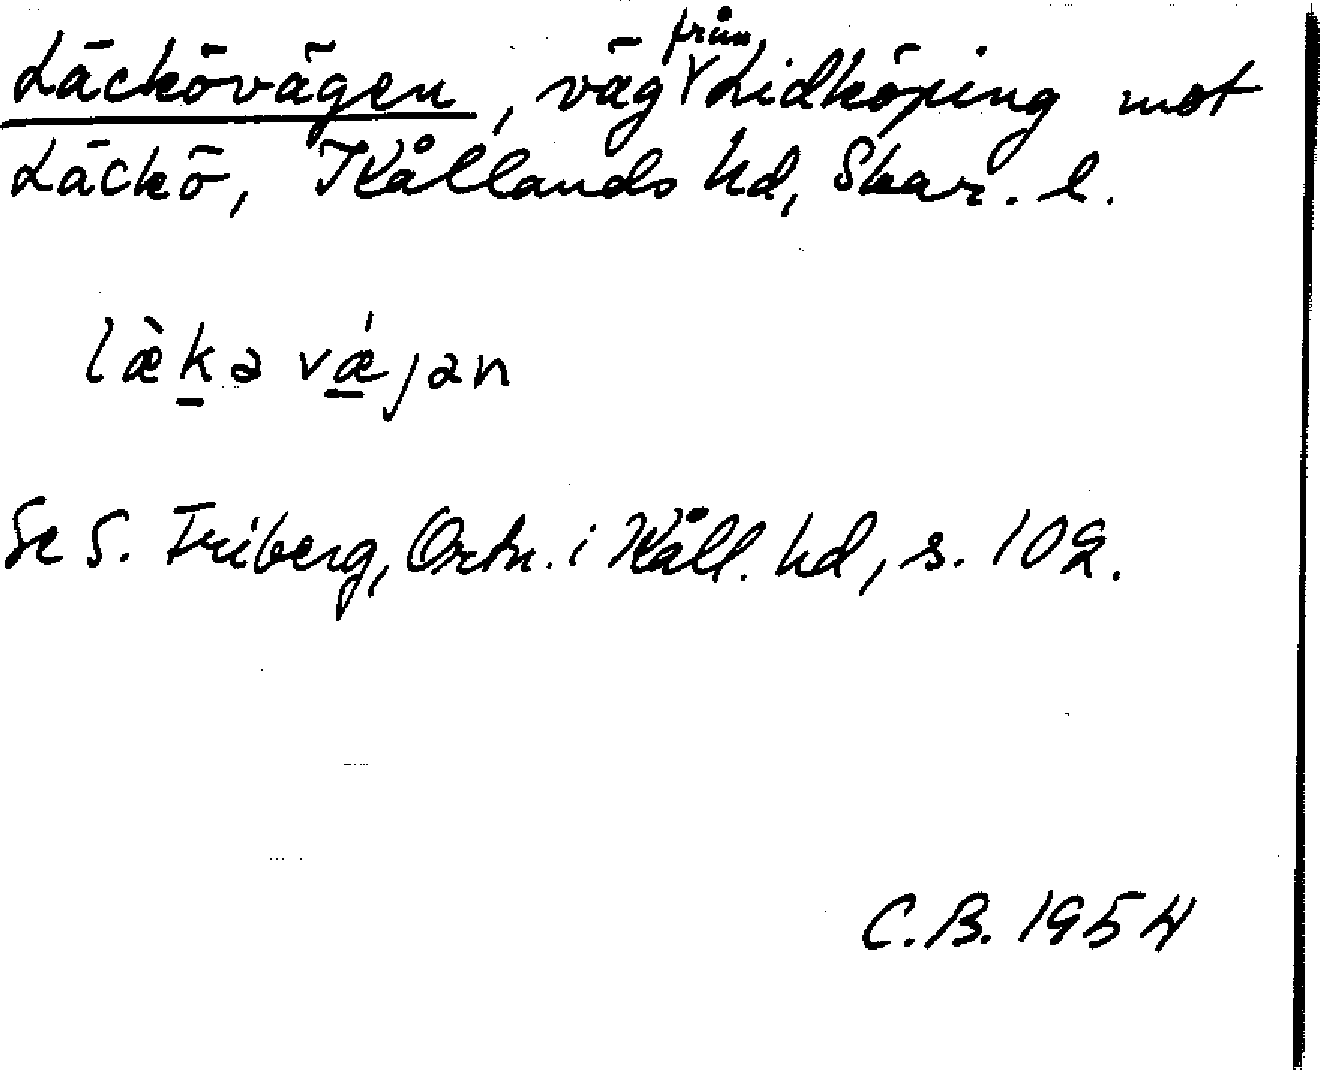 Läckövägen, väg från Lidköping mot
Läckö, Kållands hd, Skar. l.
læ̀k̲ə vǽ̲jən
Se S. Friberg, Ortn. i Kåll. hd, s. 102.
C.B. 1954